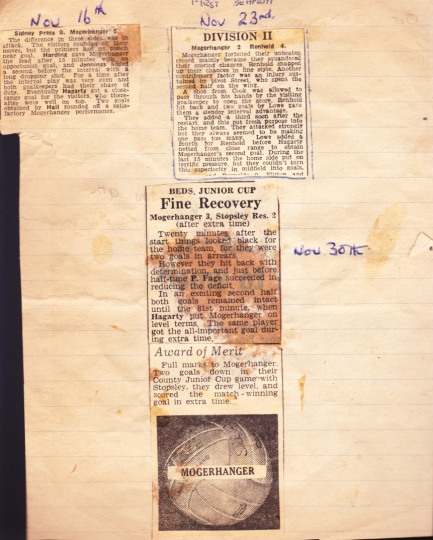 Nov 16th
Sidney Press 0, Mogerhanger 5
The difference in these sides was in
attack. The visitors rushed off their
moves, but the printers had too much
Harding gave Mogerhanger
the lead after 15 minutes with an
opportunist goal, and Jennings added
a second before the interval with a
long dropping shot. For a time after
the interval play was very even and
both goalkeepers had their share of
duty. Eventually Hagarty got a close-
range goal for the visitors, who there-
after were well on top. Two goals
obtained by Hall rounded off a satis-
factory Mogerhanger performance.
FIRST
Nov 23rd.
DIVISION II
Mogerhanger 2 Renhold 4.
Mogerhanger forfeited their unbeaten
record mainly because they squandered
their scoring chances. Renhold snapped
up their chances in fine style. Another
contributory factor was an injury sus-
tained by pivot Street, who spent the
second half on the wing.
A shot from Cook was allowed to
pass through his hands by the visiting
goalkeeper to open the score. Renhold
hit back and two goals by Lowe gave
them a slender interval advantage.
They added a third soon after the
restart, and this put fresh purpose into
the home team. They attacked strongly
but they always seemed to be making
one pass too many. Lowe added a
fourth for Renhold before Hagarty
netted from close range to obtain
Mogerhanger's second goal. During the
last 15 minutes the home side put on
terrific pressure, but they couldn't turn
this superiority in midfield into goals.
BEDS. JUNIOR CUP
Fine Recovery
Mogerhanger 3, Stopsley Res. 2
(after extra time)
Twenty minutes after the
start things looked black for
the home team, for they were
two goals in arrears.
However they hit back with
determination, and just before
half-time P. Fage succeeded in
reducing the deficit.
In an exciting second half
both goals remained intact
until the 81st minute, when
Hagarty put Mogerhanger on
level terms. The same player
got the all-important goal dur-
ing extra time.
Nov 30th
Award of Merit
Full marks to Mogerhanger.
Two goals down in their
County Junior Cup game with
Stopsley, they drew level, and
scored the match-winning
goal in extra time.
MOGERHANGER